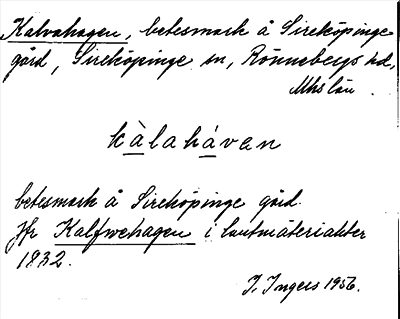 Kalvahagen, betesmark å Sireköpinge
gård, Sireköpinge sn, Rönnebergs hd,
Mhs län.
kàlahávan
betesmark å Sireköpinge gård.
Jfr Kalfwehagen i lantmäteriakter
1832.
I. Ingers 1956.